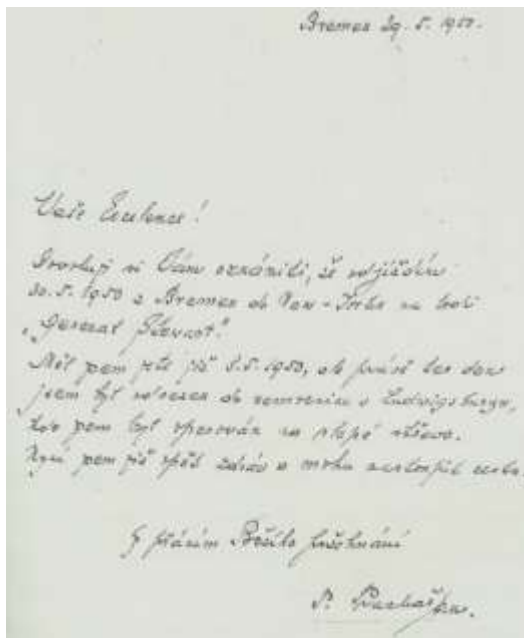 Bremen 29. 5. 1950.
Vaše Excelence!
Dovoluji si Vám oznámiti, že odjíždím
30. 5. 1950 z Bremen do New-Yorku na lodi
„General
Měl jsem jeti již 5. 1950, ale právě ten den
jsem byl odvezen do nemocnice v Ludwigsburgu,
kde jsem byl operován na slepé střevo.
Nyní jsem již opět zdráv a mohu nastoupit cestu.
S přáním Božího požehnání
P.